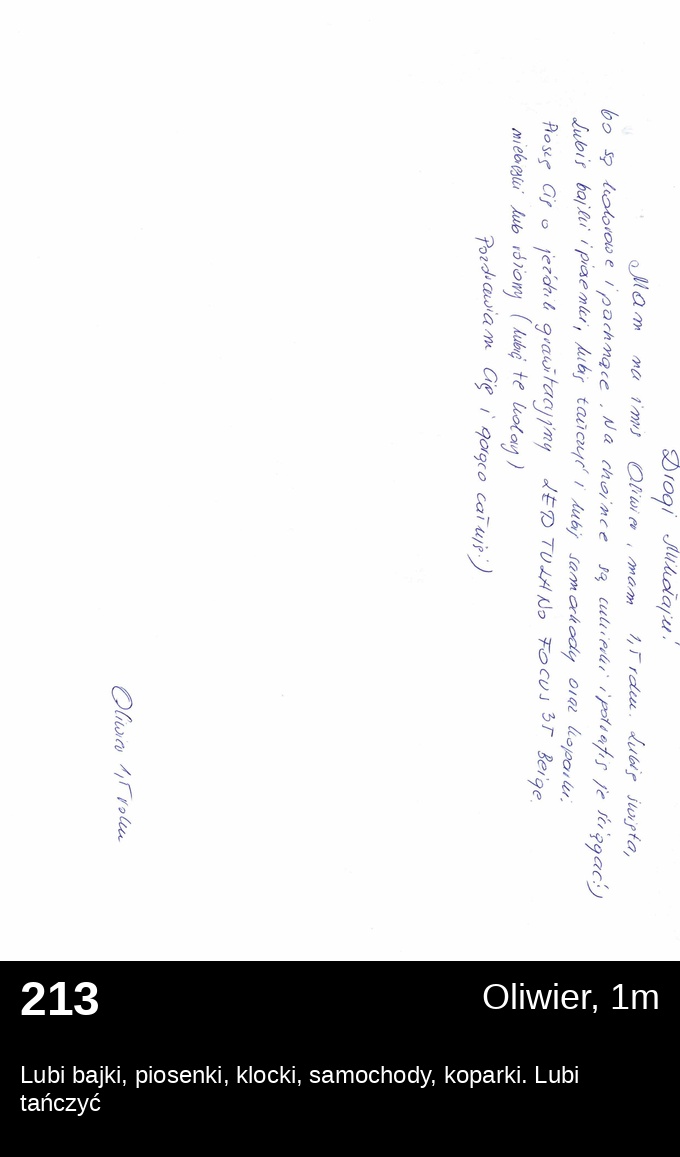 Drogi Mikołaju!
Mam na imię Oliwier, mam 1,5 roku. Lubię święta,
bo są kolorowe i pachnące. Na choince są cukierki i potrafię je ściągać :)
Lubię bajki i piosenki, lubię tańczyć i lubię samochody oraz koparki.
Proszę Cię o jeździk grawitacyjny LED TULANO FOCUS 3T Beige.
niebieski lub różowy (lubię te kolory)
Pozdrawiam Cię i gorąco całuję :)
Oliwier 1,5 roku
213
Oliwier, 1m
Lubi bajki, piosenki, klocki, samochody, koparki. Lubi
tańczyć